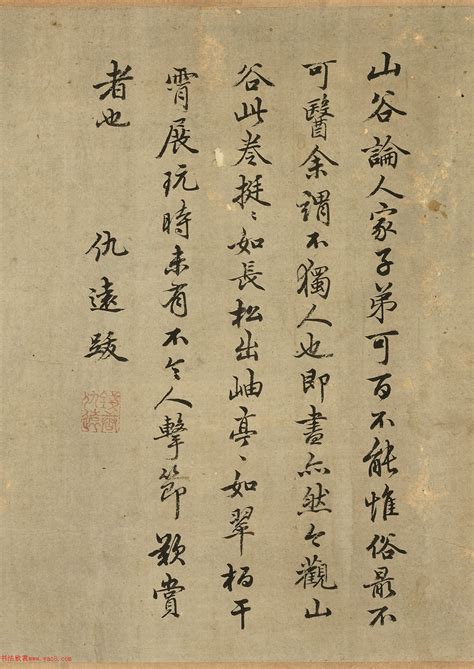 山谷論人家子弟可百不能惟俗最不
可醫余謂不獨人也即書亦然今觀山
谷此卷挺〻如長松出岫亭〻如翠柏干
霄展玩時未有不令人擊節歎賞
者也 仇遠跋
书法欣赏www.yac8.com